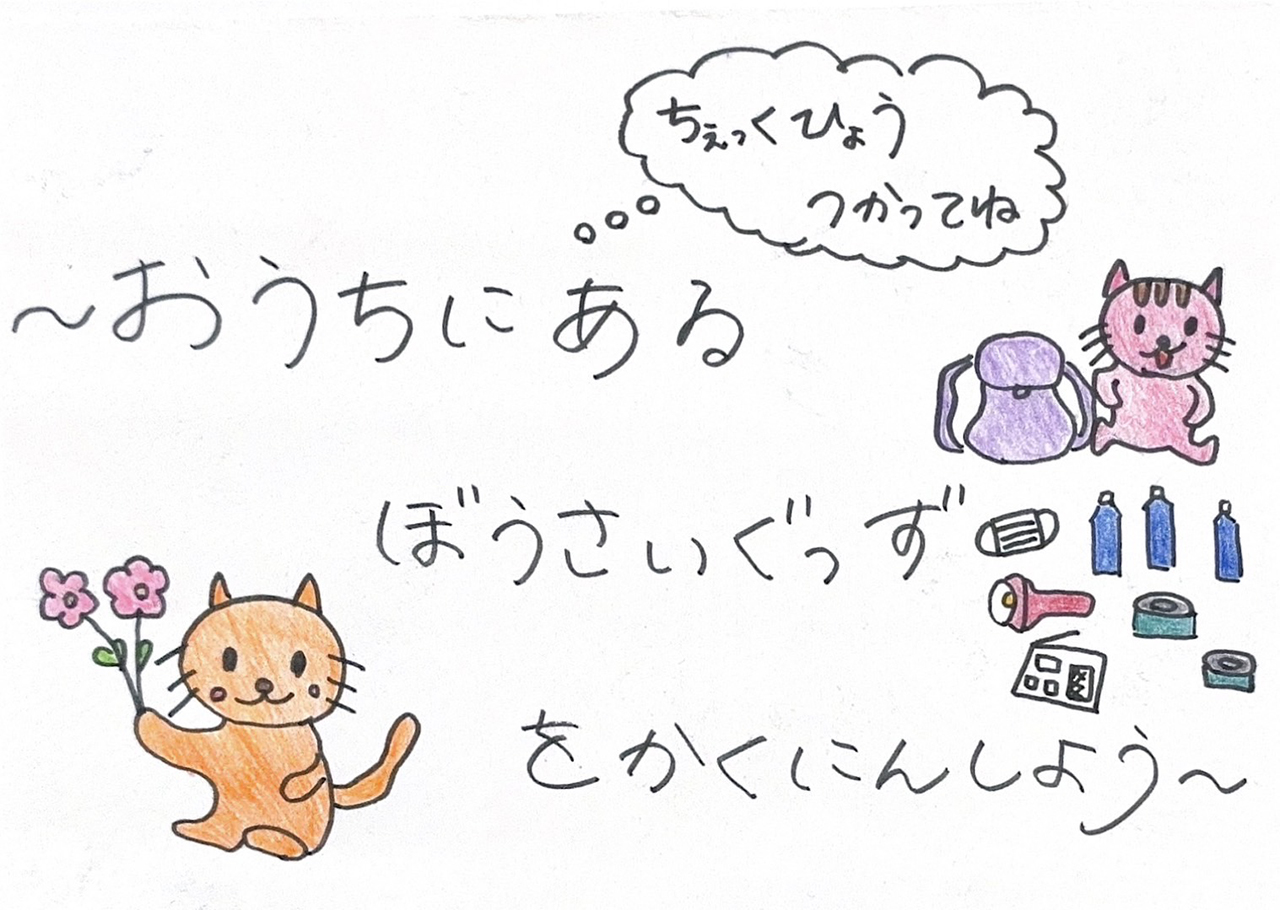 ちぇっくひょう
つかってね
～おうちにある
ぼうさいぐっず
をかくにんしよう～